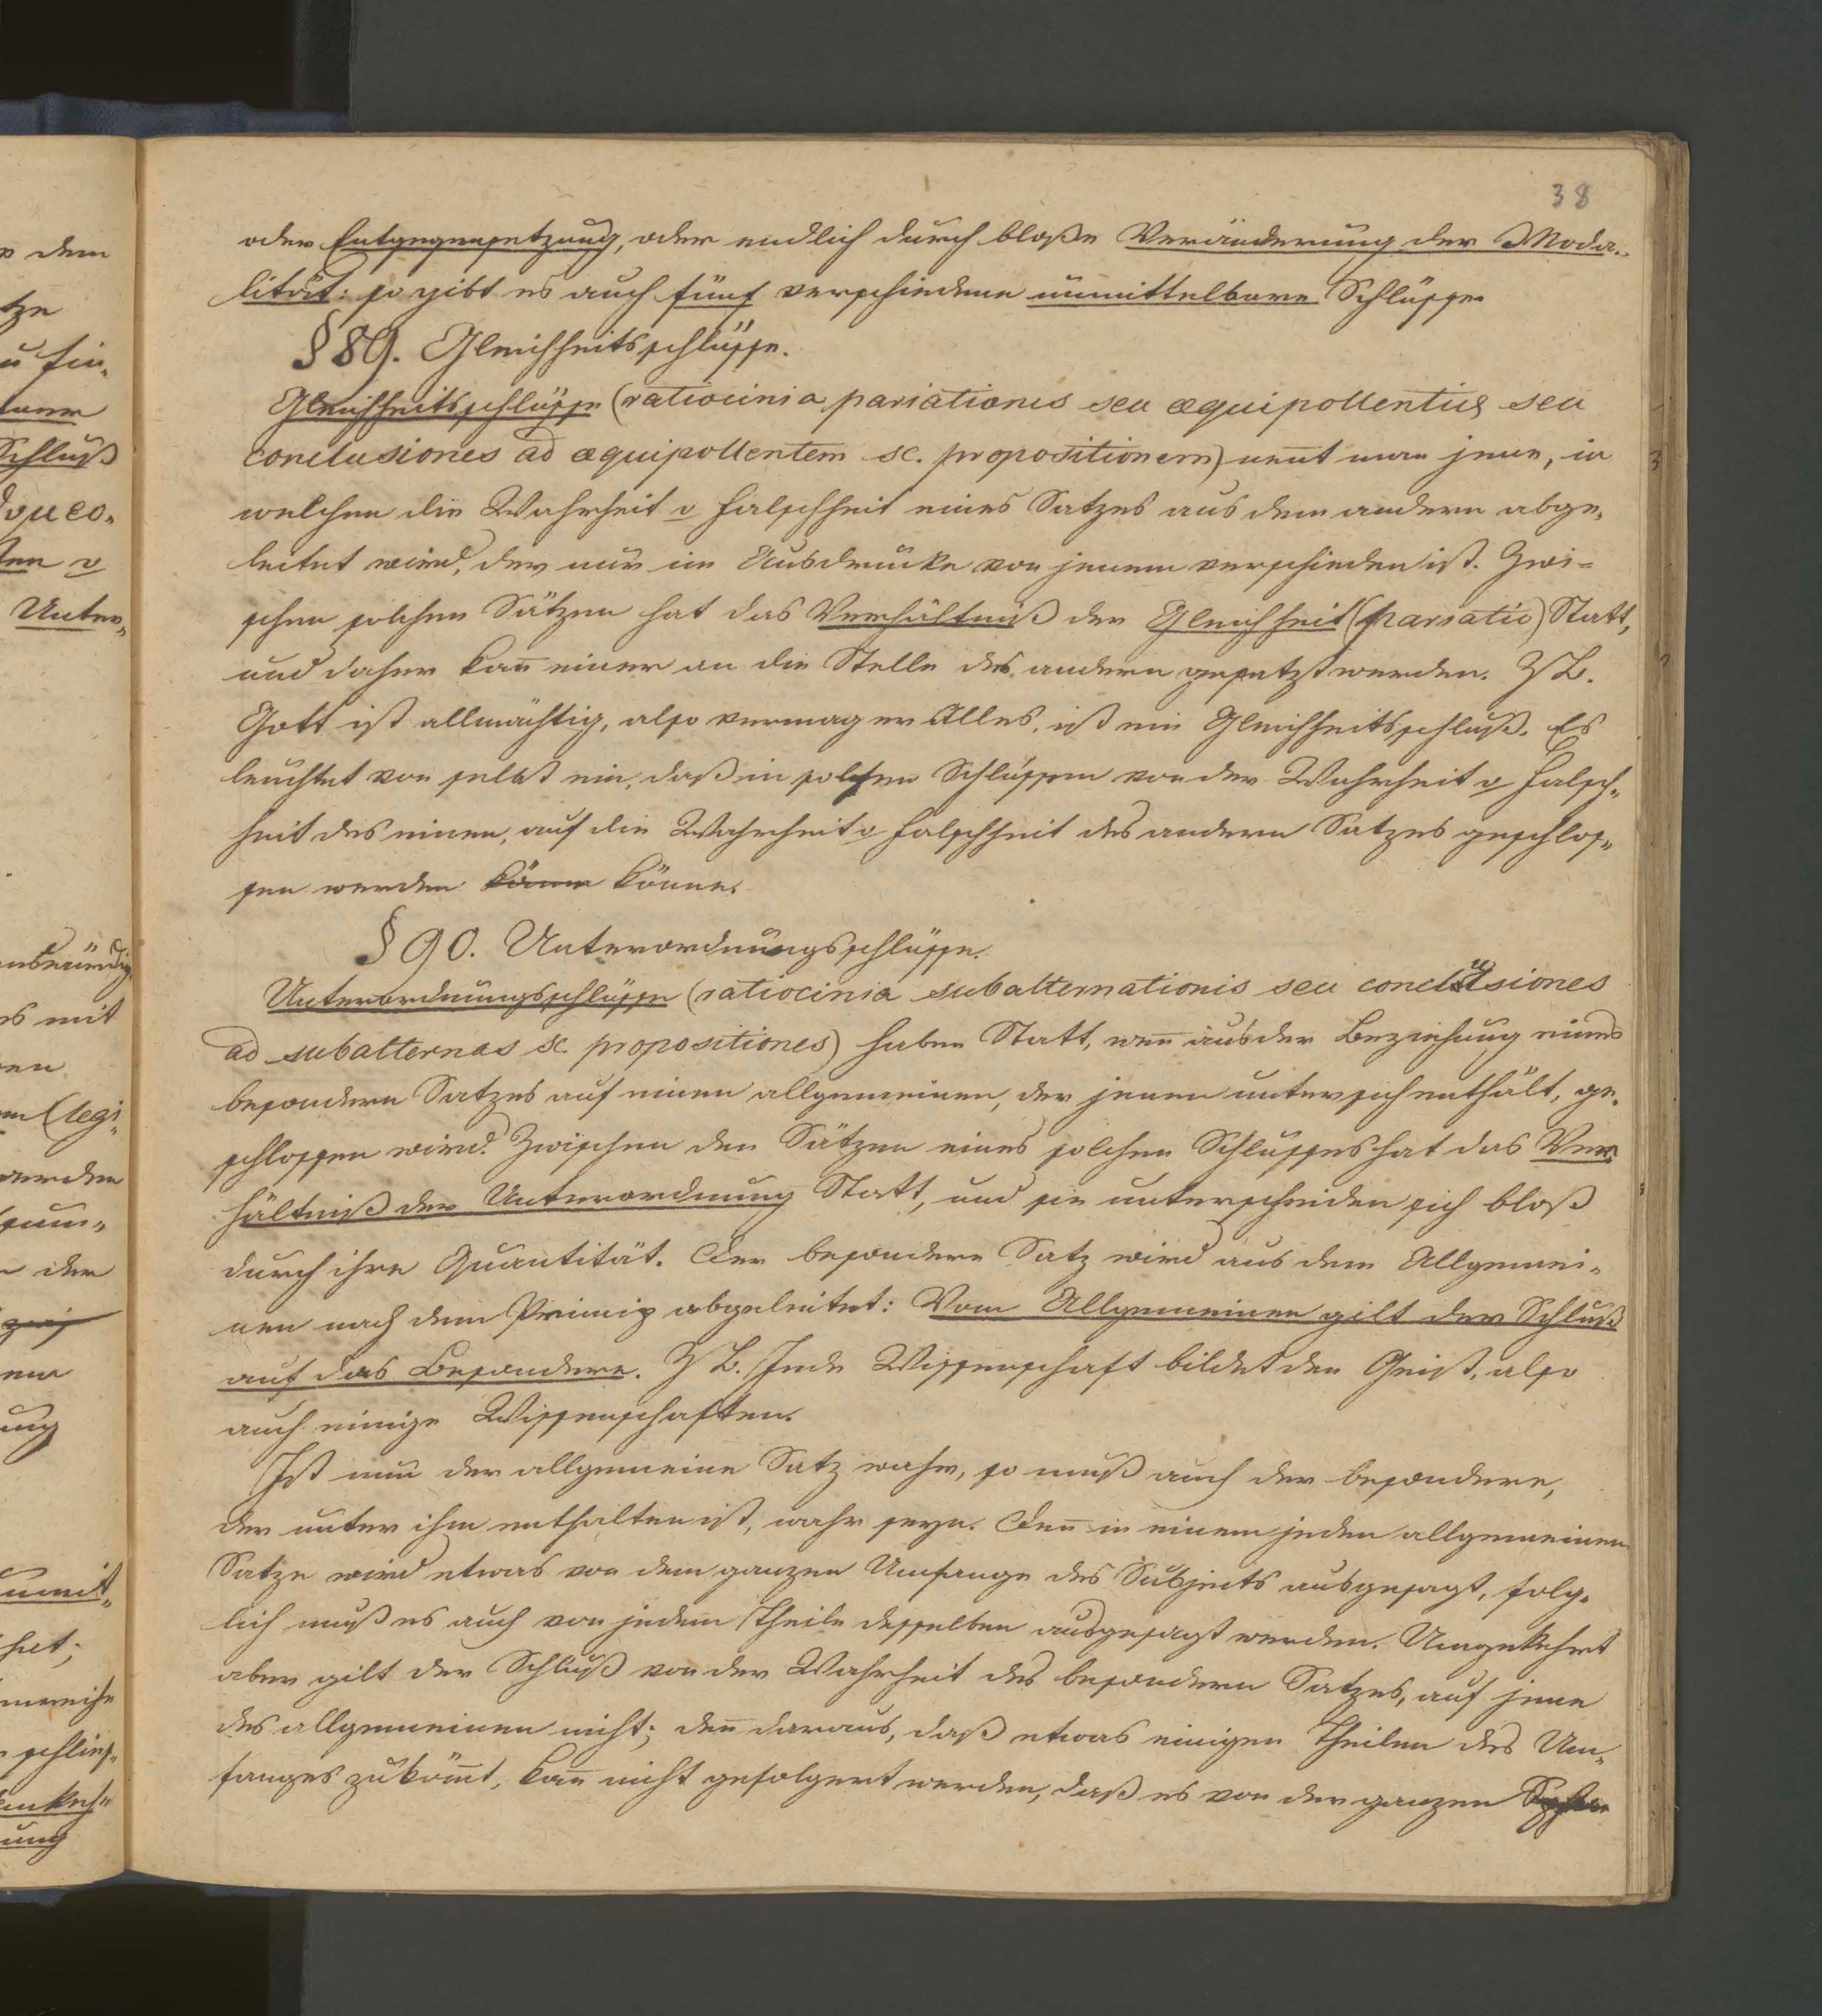 38
oder Entgegensetzung, oder endlich durch bloße Veränderung der Moda-
lität: so gibt es auch fünf verschiedene unmittelbare Schlüsse
§ 89. Gleichheitsschlüsse.
Gleichheitsschlüsse (ratiocinia pariationis seu æquipollentiæ seu
conclusiones ad æquipollentem sc. propositionem) nen̄t man jene, in
welchen die Wahrheit o Falschheit eines Satzes aus dem andern abge-
leitet wird, der nur im Ausdrucke von jenem verschieden ist. Zwi-
schen solchen Sätzen hat das Verhältniß der Gleichheit (pariatio) Statt,
und daher kan̄ einer an die Stelle des andern gesetzt werden. Z B.
Gott ist allmächtig, also vermag er Alles, ist ein Gleichheitsschluß. Es
leuchtet von selbst ein, daß in solchen Schlüssen von der Wahrheit o Falsch-
heit des einen, auf die Wahrheit o Falschheit des andern Satzes geschlos-
sen werden könne könne.
§ 90. Unterordnungsschlüsse.
Unterordnungsschlüsse (ratiocinia subalternationis seu conclusiones
ad subalternas sc. propositiones) haben Statt, wen̄ aus der Beziehung eines
besondern Satzes auf einen allgemeinen, der jenen unter sich enthält, ge-
schlossen wird. Zwischen den Sätzen eines solchen Schlusses hat das Ver-
hältniß der Unterordnung Statt, und sie unterscheiden sich bloß
durch ihre Quantität. Der besondere Satz wird aus dem Allgemei-
nen nach dem Prinzip abgeleitet: Vom Allgemeinen gilt der Schluß
auf das Besondere. Z B. Jede Wissenschaft bildet den Geist, also
auch einige Wissenschaften.
Ist nun der allgemeine Satz wahr, so muß auch der besondere,
der unter ihm enthalten ist, wahr seyn. Den̄ in einem jeden allgemeinen
Satze wird etwas von dem ganzen Umfange des Subjects ausgesagt, folg-
lich muß es auch von jedem Theile desselben ausgesagt werden. Umgekehrt
aber gilt der Schluß von der Wahrheit des besondern Satzes, auf jene
des allgemeinen nicht; den̄ daraus, daß etwas einigen Theilen des Um-
fanges zukom̄t, kan̄ nicht gefolgert werden, daß es von der ganzen